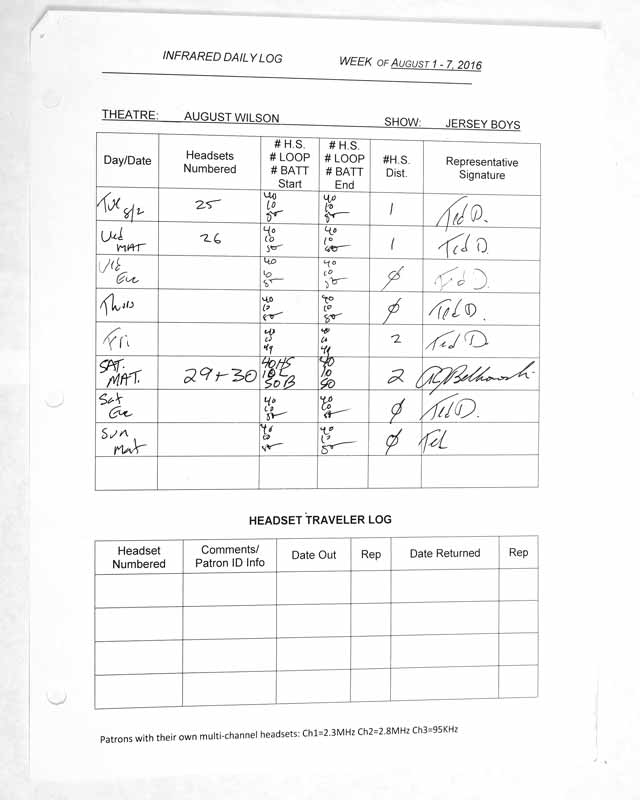 INFRARED DAILY LOG WEEK OF AUGUST 1 - 7, 2016
THEATRE: AUGUST WILSON SHOW: JERSEY BOYS
Day/Date Headsets Numbered # H.S. # LOOP # BATT Start # H.S. # LOOP # BATT End #H.S. Dist. Representative Signature
Tue 8/2 25 40 10 50 40 10 50 1 Ted D.
Wed MAT 26 40 10 50 40 10 50 1 Ted D.
Wed Eve 40 10 50 40 10 50 Ø Ted D.
Thurs 40 10 50 40 10 50 Ø Ted D.
Fri 40 10 49 40 10 49 2 Ted D
SAT. MAT. 29 + 30 40HS 10L 50B 40 10 50 2
Sat Eve 40 10 50 40 10 50 Ø Ted D.
Sun Mat 40 10 50 40 10 50 Ø Ted
HEADSET TRAVELER LOG
Headset Numbered Comments/ Patron ID Info Date Out Rep Date Returned Rep
Patrons with their own multi-channel headsets: Ch1=2.3MHz Ch2=2.8MHz Ch3=95KHz